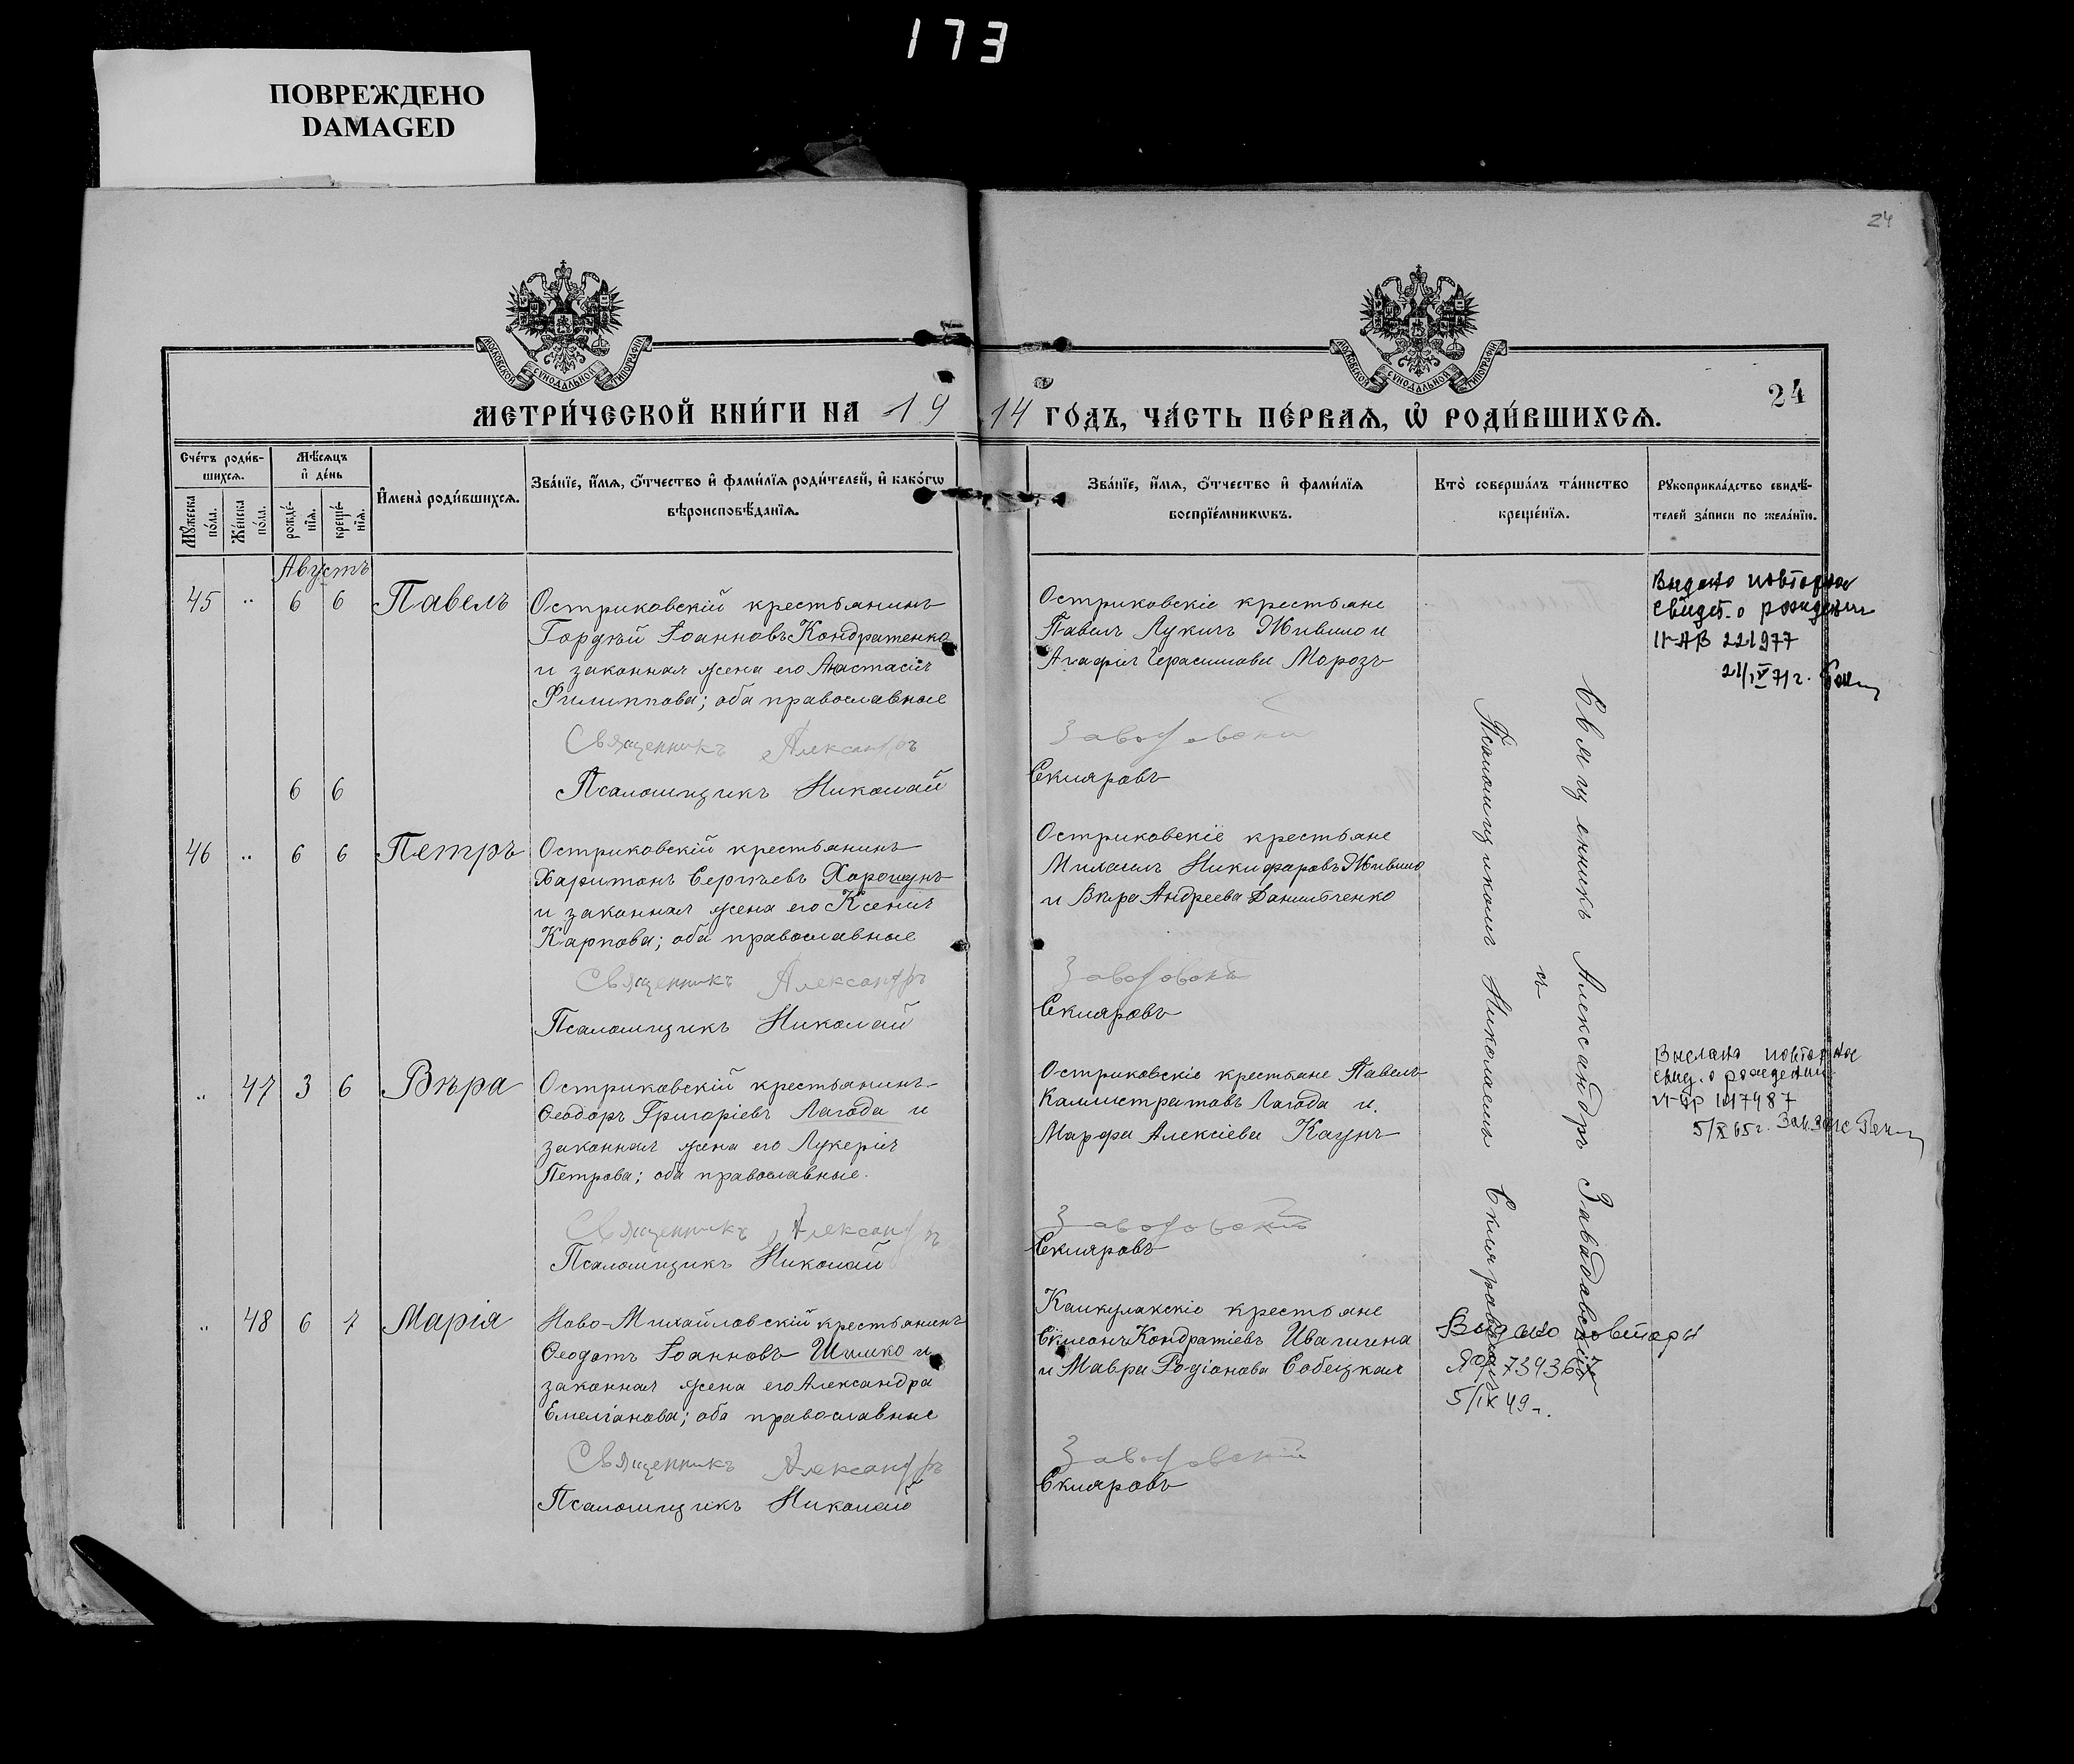 173
ПОВРЕЖДЕНО
DAMAGED
24
МОСКОВСКОЙ СѴНОДАЛЬНОЙ ТИПОГРАФІИ
МОСКОВСКОЙ СѴНОДАЛЬНОЙ ТИПОГРАФІИ
24
МЕТРИ́ЧЕСКОЙ КНИ́ГИ НА 1914 ГО́ДЪ, ЧА́СТЬ ПЕ́РВАѦ, Ѡ҆ РОДИ́ВШИХСѦ.
Сче́тъ роди́в-
шихсѧ.
Мѣ́сѧцъ
и҆ де́нь
Мꙋ́жеска по́ла.
Же́нска по́ла.
рожде́-нїѧ.
креще́-нїѧ.
И҆мена̀ роди́вшихсѧ.
Зва́нїе, и҆́мѧ, ѻ҆́тчество и҆ фами́лїѧ роди́телей, и҆ како́гѡ
вѣроисповѣ́данїѧ.
Зва́нїе, и҆́мѧ, ѻ҆́тчество и҆ фами́лїѧ
воспрїе́мникѡвъ.
Кто̀ соверша́лъ та́инство
креще́нїѧ.
Рꙋкоприкла́дство свидѣ́-
телей за́писи по жела́нїю.
Августъ
45 .. 6 6 Павелъ
Остриковскій крестьянинъ
Гордѣй Іоанновъ Кондратенко
и законная жена его Анастасія
Филиппова; оба православные
Священникъ Александръ
6 6
Псаломщикъ Николай
Остриковскіе крестьяне
Павелъ Лукичъ Живило и
Агафія Герасимова Морозъ
Заводовскій
Скляровъ
Выдано повторное
свидет. о рождении
II-АВ 221977
21/IV 71г.
46 .. 6 6 Петръ
Остриковскій крестьянинъ
Харитонъ Сергѣевъ Хорошунъ
и законная жена его Ксенія
Карпова; оба православные
Священникъ Александръ
Псаломщикъ Николай
Остриковскіе крестьяне
Михаилъ Никифоровъ Живило
и Вѣра Андреева Данильченко
Заводовскій
Скляровъ
.. 47 3 6 Вѣра
Остриковскій крестьянинъ
Ѳеодоръ Григоріевъ Лагода и
законная жена его Лукерія
Петрова; оба православные.
Священникъ Александръ
Псаломщикъ Николай
Остриковскіе крестьяне Павелъ
Каллистратовъ Лагода и
Марфа Алексіева Каунъ
Заводовскій
Скляровъ
Выслано повторное
свид. о рождении
147487
5/X 65г.
.. 48 6 7 Марія
Ново-Михайловскій крестьянинъ
Ѳеодотъ Іоанновъ Шишко и
законная жена его Александра
Емеліанова; оба православные
Священникъ Александръ
Псаломщикъ Николай
Канкулакскіе крестьяне
Симеонъ Кондратіевъ Ивашина
и Мавра Родіонова Собецкая
Заводовскій
Скляровъ
Священникъ Александръ Заводовскій
съ
Псаломщикомъ Николаемъ Скляровымъ
Выдано повторн
5/IX 49г.